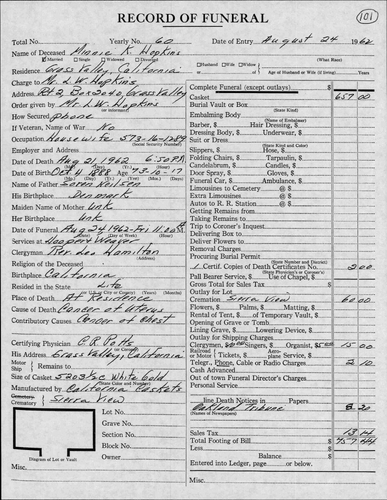 RECORD OF FUNERAL
101
Total No. Yearly No. 60 Date of Entry August 24 1962
Name of Deceased Minnie K. Hopkins
Married Single Widowed Divorced (What Race)
Residence Grass Valley, California
Husband Wife Widow
Age of Husband or Wife (if living) Years
Charge to Mr. L.W. Hopkins
Address Rt 2, Box 2040, Grass Valley
Order given by Mr. L.W. Hopkins
How Secured phone
If Veteran, of War No
Occupation Housewife 573-16-1789
(Social Security Number)
Employer and Address
Date of Death Aug 21, 1962 6:50 PM
Date of Birth Oct 4 1888 Age 73-10-17
Name of Father Soren Neilsen
His Birthplace Denmark
Maiden Name of Mother Unk
Her Birthplace Unk
Date of Funeral Aug 24 1962-Fri.
Services at Hooper & Weaver
Clergyman Rev. Leo Hamilton
Religion of the Deceased
Birthplace California
Resided in the State Life
Place of Death At Residence
Cause of Death Cancer of Uterus
Contributory Causes Cancer of Chest
Certifying Physician C.R. Potts
His Address Grass Valley, California
Motor
Ship Remains to
Size of Casket 5203½c White Gold
(State Color and Number)
Manufactured by California Caskets
Cemetery
Crematory Sierra View
Lot No.
Grave No.
Section No.
Block No.
Owner
Diagram of Lot or Vault
Misc.
Complete Funeral (except outlays) $
Casket 657 00
Burial Vault or Box
(State Kind)
Embalming Body
(Name of Embalmer)
Barber, $ Hair Dressing, $
Dressing Body, $ Underwear, $
Suit or Dress
(State Kind and Color)
Slippers, $ Hose, $
Folding Chairs, $ Tarpaulin, $
Candelabrum, $ Candles, $
Door Spray, $ Gloves, $
Funeral Car, $ Ambulance, $
Limousines to Cemetery @ $
Extra Limousines @ $
Autos to R. R. Station @ $
Getting Remains from
Taking Remains to
Trip to Coroner's Inquest
Delivering Box to
Deliver Flowers to
Removal Charges
Procuring Burial Permit
(State Number and District)
1 Certif. Copies of Death Certificates No. 2 00
Pall Bearer Service, $ Use of Chapel, $
Gross Total for Sales Tax $
Outlay for Lot
Cremation Sierra View 60 00
Flowers, $ Palms, $ Matting, $
Rental of Tent, $ of Temporary Vault, $
Opening of Grave or Tomb
Lining Grave, $ Lowering Device, $
Outlay for Shipping Charges
Clergyman, $ Singers, $ Organist, $ 15 00
Railroad
or Motor Tickets, $ Aero-
plane Service, $
Telegr., Phone, Cable or Radio Charges 2 10
Cash Advanced $
Out of town Funeral Director's Charges
Personal Service
line Death Notices in Papers
Oakland Tribune 8 20
(Names of Newspapers)
Sales Tax 13 14
Total Footing of Bill $ 757 44
Less
Balance $
Entered into Ledger, page or below.
Misc.